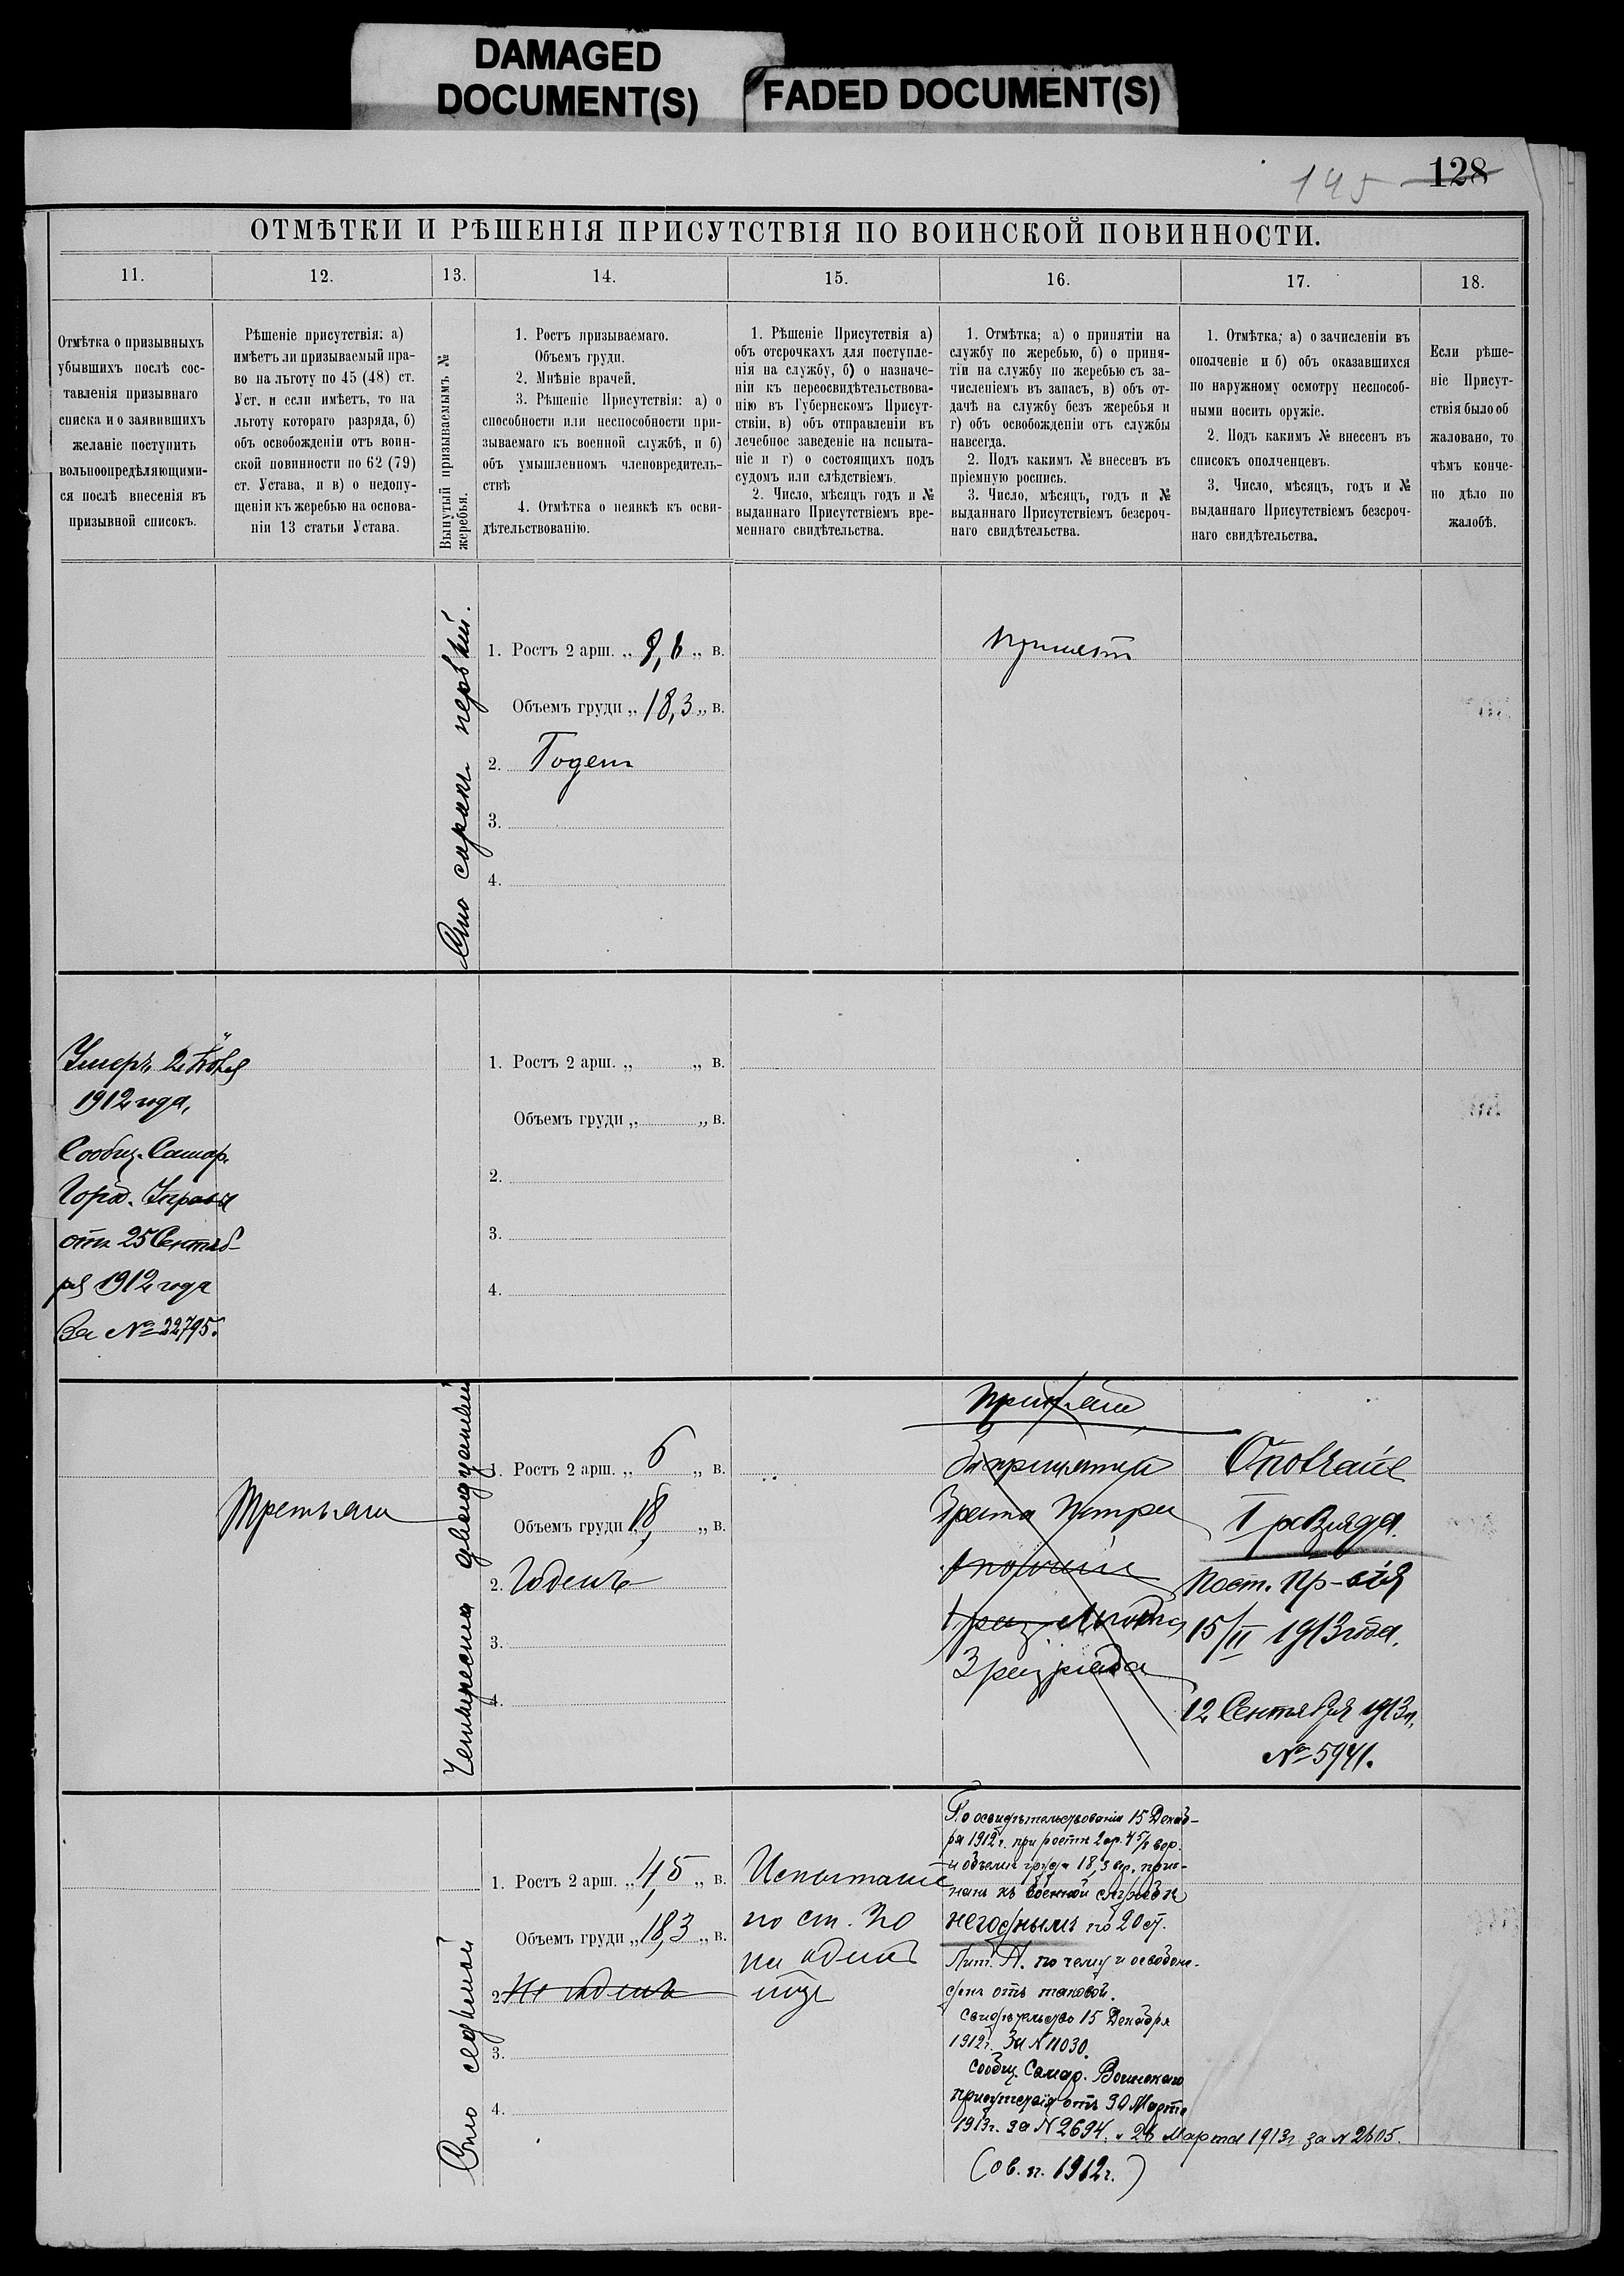 DAMAGED
DOCUMENT(S)
FADED DOCUMENT(S)
145 128
ОТМѢТКИ И РѢШЕНІЯ ПРИСУТСТВІЯ ПО ВОИНСКОЙ ПОВИННОСТИ.
11.
12.
13.
14.
15.
16.
17.
18.
Отмѣтка о призывныхъ
убывшихъ послѣ сос-
тавленія призывнаго
списка и о заявившихъ
желаніе поступить
вольноопредѣляющими-
ся послѣ внесенія въ
призывной списокъ.
Рѣшеніе присутствія: а)
имѣетъ ли призываемый пра-
во на льготу по 45 (48) ст.
Уст. и если имѣетъ, то на
льготу котораго разряда, б)
объ освобожденіи отъ воин-
ской повинности по 62 (79)
ст. Устава, и в) о недопу-
щеніи къ жеребью на основа-
ніи 13 статьи Устава.
Вынутый призываемымъ №
жеребья.
1. Ростъ призываемаго.
Объемъ груди.
2. Мнѣніе врачей.
3. Рѣшеніе Присутствія: а) о
способности или неспособности при-
зываемаго къ военной службѣ, и б)
объ умышленномъ членовредитель-
ствѣ
4. Отмѣтка о неявкѣ къ осви-
дѣтельствованію.
1. Рѣшеніе Присутствія а)
объ отсрочкахъ для поступле-
нія на службу, б) о назначе-
ніи къ переосвидѣтельствова-
нію въ Губернскомъ Присут-
ствіи, в) объ отправленіи въ
лечебное заведеніе на испыта-
ніе и г) о состоящихъ подъ
судомъ или слѣдствіемъ.
2. Число, мѣсяцъ годъ и №
выданнаго Присутствіемъ вре-
меннаго свидѣтельства.
1. Отмѣтка; а) о принятіи на
службу по жеребью, б) о приня-
тіи на службу по жеребью съ за-
численіемъ въ запасъ, в) объ от-
дачѣ на службу безъ жеребья и
г) объ освобожденіи отъ службы
навсегда.
2. Подъ какимъ № внесенъ въ
пріемную роспись.
3. Число, мѣсяцъ, годъ и №
выданнаго Присутствіемъ безсроч-
наго свидѣтельства.
1. Отмѣтка; а) о зачисленіи въ
ополченіе и б) объ оказавшихся
по наружному осмотру неспособ-
ными носить оружіе.
2. Подъ какимъ № внесенъ въ
списокъ ополченцевъ.
3. Число, мѣсяцъ, годъ и №
выданнаго Присутствіемъ безсроч-
наго свидѣтельства.
Если рѣше-
ніе Присут-
ствія было об
жаловано, то
чѣмъ конче-
но дѣло по
жалобѣ.
Сто сорокъ первый.
1. Ростъ 2 арш. „ 9,6 „ в.
Объемъ груди „ 18,3 „ в.
2. Годенъ
3.
4.
Принятъ
Умеръ 2 Ноя
1912 года,
Сообщ. Самар.
Город. Управы
отъ 25 Сентяб-
ря 1912 года
За № 22795.
1. Ростъ 2 арш. „ „ в.
Объемъ груди „ „ в.
2.
3.
4.
Третьяго
Четыреста двенадцатый
1. Ростъ 2 арш. „ 6 „ в.
Объемъ груди 18, „ в.
2. Годенъ
3.
4.
За принятіе
Брата Петра
ополченіе
1 раз. льгота
3 разряда
Ополченіе
I разряда.
Пост. Пр-вія
15/II 1913 года.
12 Сентября 1913 г.
№ 5941.
Сто седьмой
1. Ростъ 2 арш. „ 4,5 „ в.
Объемъ груди „ 18,3 „ в.
2. Не годенъ
3.
4.
Испытаніе
по ст.
По освидѣтельствованіи 15 Декаб-
ря 1912 г. при ростѣ 2 ар. 4 5/8 вер.
и объемѣ груди 18,3 вер. приз-
нанъ къ военной службѣ
негоднымъ по 20 ст.
Лит. А. почему и освобож-
денъ отъ таковой.
Свидѣтельство 15 Декабря
1912 г. За № 11030.
Сообщ. Самар. Воинскаго
присутствія отъ 30 Марта
1913 г. за № 2694. и 26 Марта 1913 г. за № 2605.
(ов. п. 1912 г.)